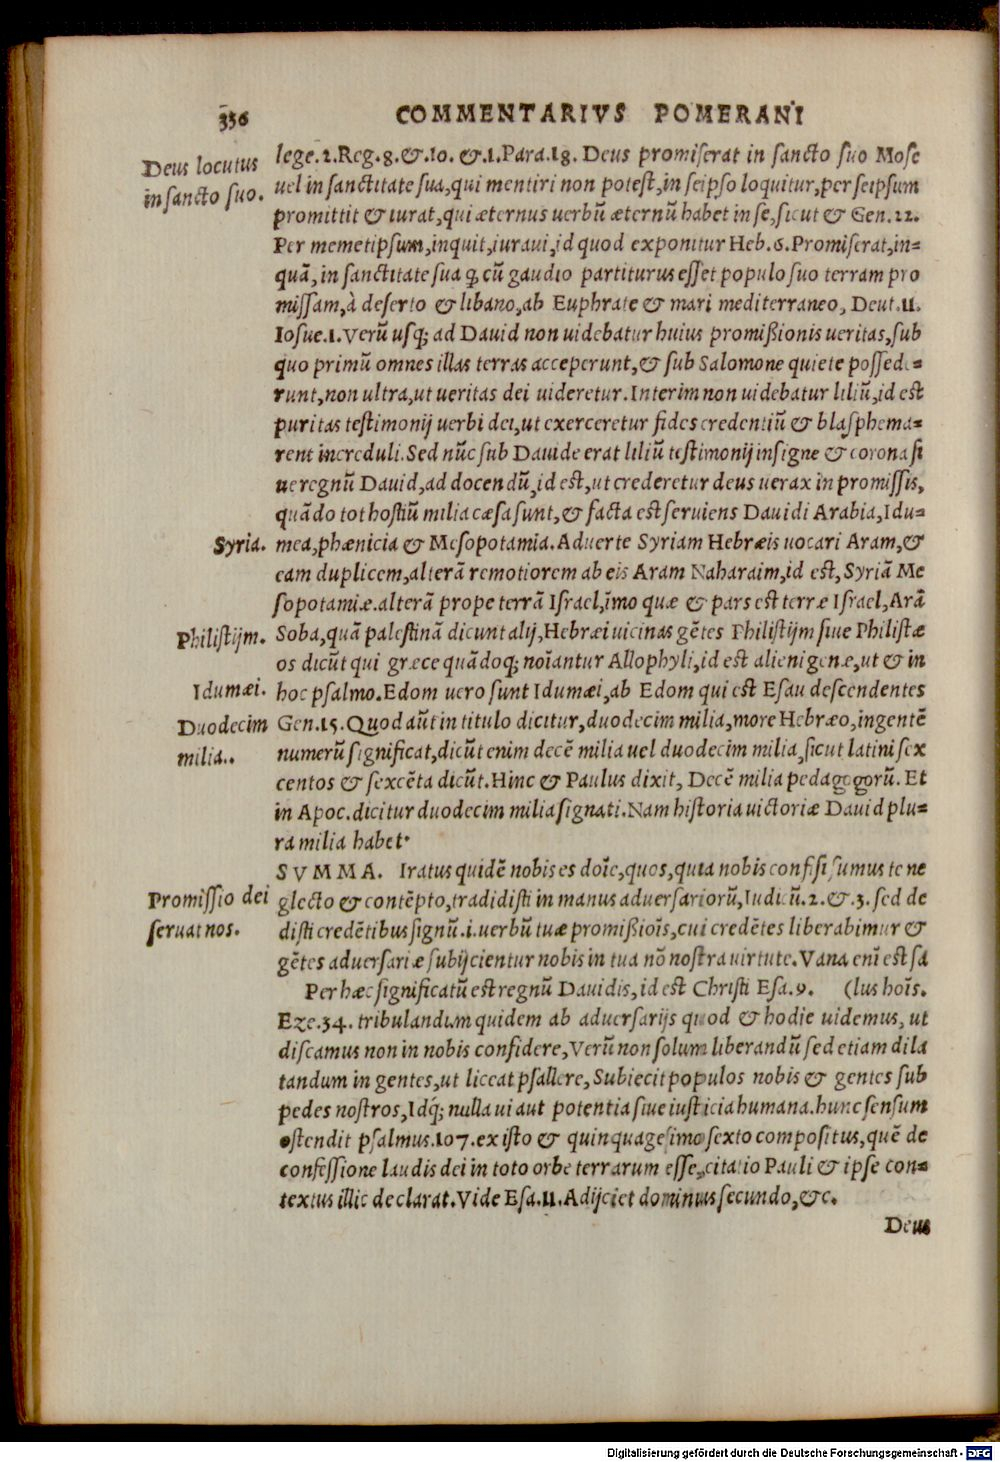 336 COMMENTARIVS POMERANI
Deus locutus
in sancto suo.
lege.2.Reg.8.&.10. &.1.Para.18. Deus promiserat in sancto suo Mose
uel in sanctitate sua,qui mentiri non potest,in seipso loquitur,per seipsum
promittit & iurat,qui æternus uerbũ æternũ habet in se,sicut & Gen.22.
Per memetipsum,inquit,iuraui,id quod exponitur Heb.6.Promiserat,in=
quã,in sanctitate sua ꝙ cũ gaudio partiturus esset populo suo terram pro
missam,à deserto & libano,ab Euphrate & mari mediterraneo, Deut.11.
Iosue.1.Verũ usq; ad Dauid non uidebatur huius promißionis ueritas,sub
quo primũ omnes illas terras acceperunt,& sub Salomone quiete possede=
runt,non ultra,ut ueritas dei uideretur.Interim non uidebatur liliũ,id est
puritas testimonij uerbi dei,ut exerceretur fides credentiũ & blasphema=
rent increduli.Sed nũc sub Dauide erat liliũ testimonij insigne & corona si
ue regnũ Dauid,ad docendũ,id est,ut crederetur deus uerax in promissis,
quãdo tot hostiũ milia cæsa sunt,& facta est seruiens Dauidi Arabia,Idu=
Syria.
mea,phænicia & Mesopotamia.Aduerte Syriam Hebræis uocari Aram,&
eam duplicem,alterã remotiorem ab eis Aram Naharaim,id est,Syriã Me
sopotamiæ.alterã prope terrã Israel,ĩmo quæ & pars est terræ Israel,Arã
Philistijm.
Soba,quã palestinã dicunt alij,Hebræi uicinas gẽtes Philistijm siue Philistæ
os dicũt qui græce quãdoq; noĩantur Allophyli,id est alienigenæ,ut & in
Idumæi.
hoc psalmo.Edom uero sunt Idumæi,ab Edom qui est Esau descendentes
Duodecim
milia..
Gen.15.Quod aũt in titulo dicitur,duodecim milia,more Hebræo,ingentẽ
numerũ significat,dicũt enim decẽ milia uel duodecim milia,sicut latini sex
centos & sexcẽta dicũt.Hinc & Paulus dixit, Decẽ milia pedagogorũ. Et
in Apoc.dicitur duodecim milia signati.Nam historia uictoriæ Dauid plu=
ra milia habet·
SVMMA. Iratus quidẽ nobis es doĩe,quos,quia nobis confisi sumus te ne
Promissio dei
seruat nos.
glecto & contẽpto,tradidisti in manus aduersariorũ,Iudicũ.2.&.3.sed de
disti credẽtibus signũ.i.uerbũ tuæ promißioĩs,cui credẽtes liberabimur &
gẽtes aduersariæ subijcientur nobis in tua nõ nostra uirtute.Vana enĩ est sa
Per hæc significatũ est regnũ Dauidis,id est Christi Esa.9. (lus hoĩs.
Eze.34. tribulandum quidem ab aduersarijs quod & hodie uidemus, ut
discamus non in nobis confidere,Verũ non solum liberandũ sed etiam dila
tandum in gentes,ut liceat psallere,Subiecit populos nobis & gentes sub
pedes nostros,Idq́; nulla ui aut potentia siue iusticia humana.hunc sensum
ostendit psalmus.107.ex isto & quinquagesimo sexto compositus,quẽ de
confessione laudis dei in toto orbe terrarum esse,citatio Pauli & ipse con=
textus illic declarat.Vide Esa.11.Adijciet dominus secundo,&c.
Deus
Digitalisierung gefördert durch die Deutsche Forschungsgemeinschaft - DFG